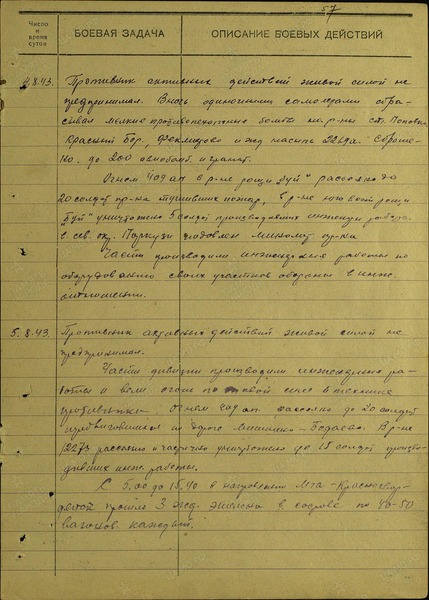 57
Число и время суток
БОЕВАЯ ЗАДАЧА
ОПИСАНИЕ БОЕВЫХ ДЕЙСТВИЙ
4.8.43. Противник активных действий живой силой не
предпринимал. Вновь одиночными самолетами сбра-
сывал мелкие противопехотные бомбы на р-ны ст. Поповка
Красный Бор, Феклистово и жел насыпь Сброше-
но до 200 авиабомб и гранат.
Огнем 409 ап в р-не рощи "Буй" рассеяно до
20 солдат пр-ка тушивших пожар, в р-не рощи
"Буй" уничтожено 5 солдат производивших инженер работы
в сев. окр. Поркузи подавлен миномет пр-ка
Части производили инженерные работы по
оборудованию своих участков обороны в инж.
отношении.
5.8.43. Противник активных действий живой силой не
предпринимал.
Части дивизии производили инженерные ра-
боты и вели огонь по живой силе и технике
противника. Огнем 409 ап. рассеяно до 20 солдат
передвигавшихся по дороге Мишкино - В р-не
рассеяно и частично уничтожено до 15 солдат произво-
дивших инж работы.
С 5.00 до 15.40 в направлении Мга - Красногвар-
дейск прошло 3 жел. эшелона в составе по 40-50
вагонов каждый.